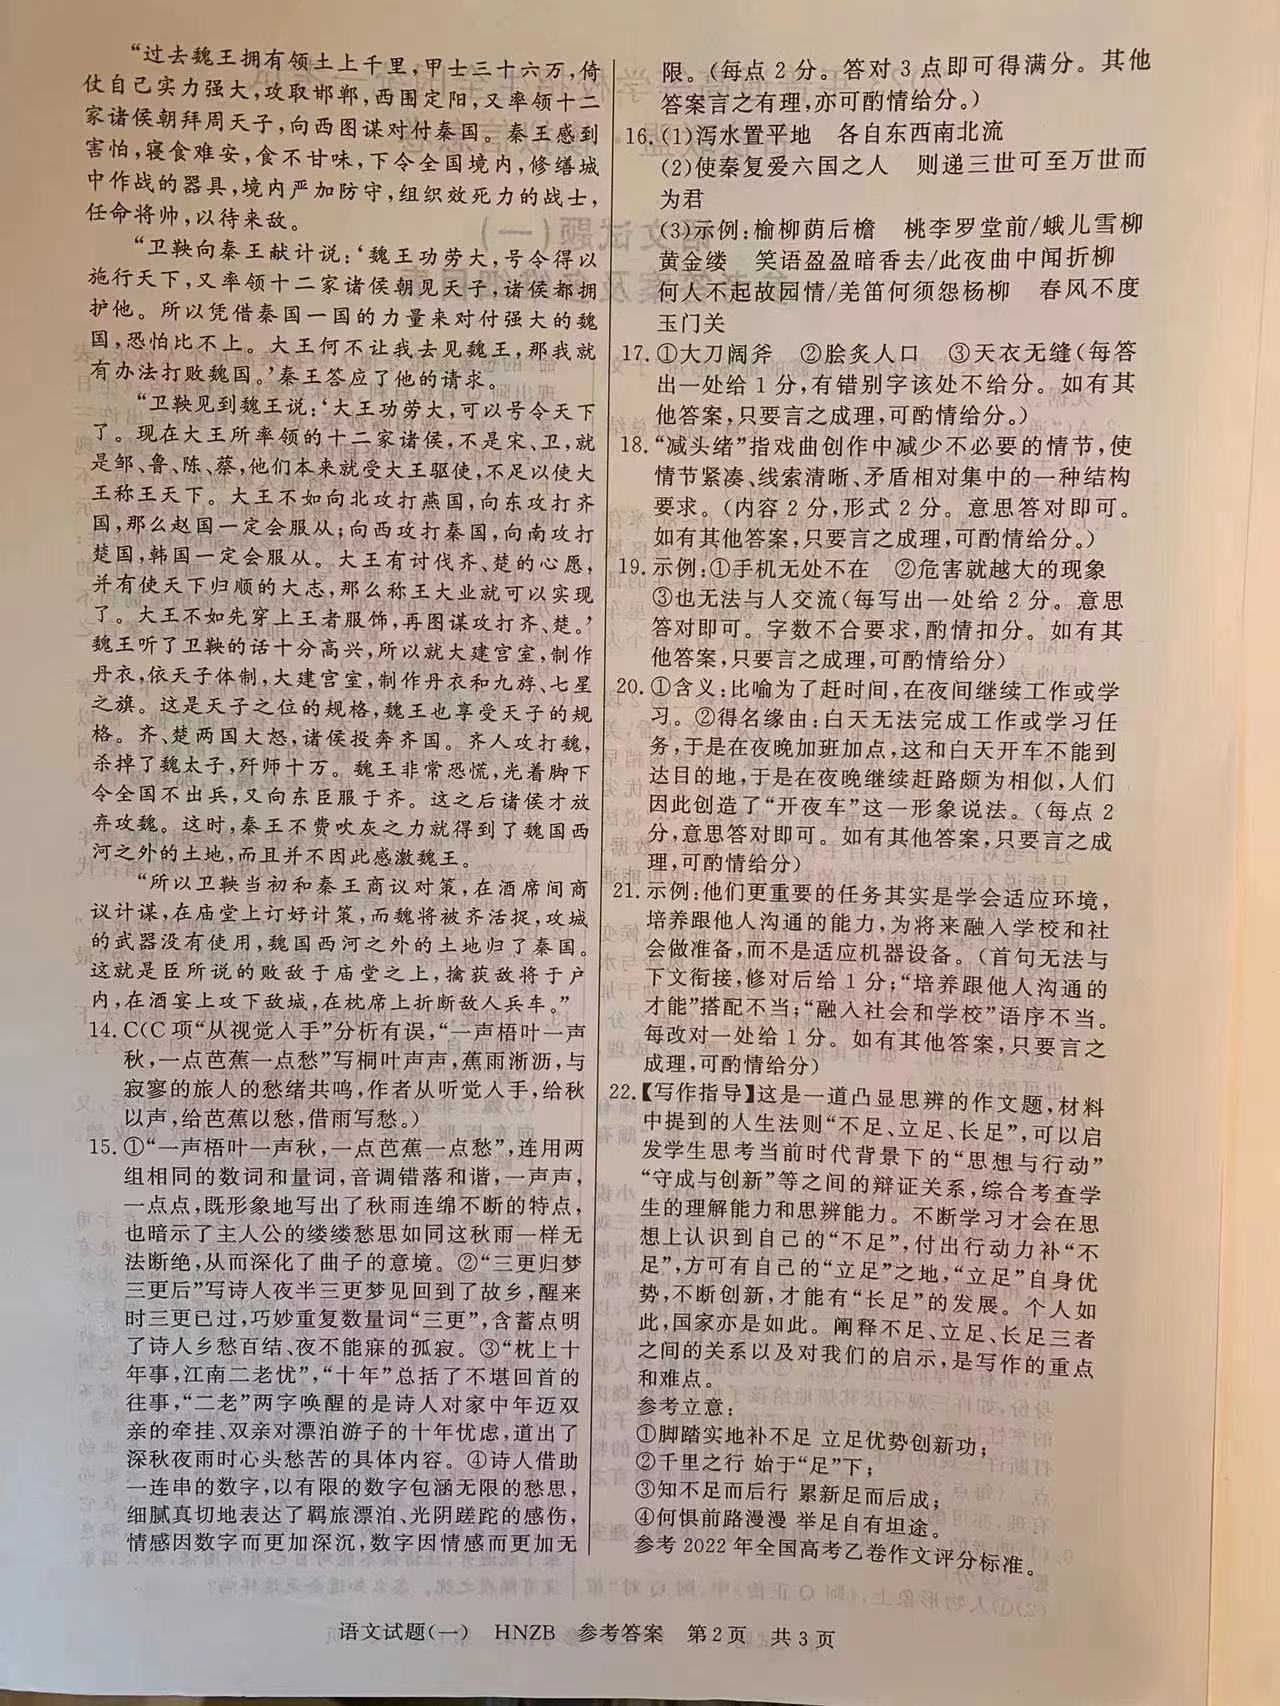 “过去魏王拥有领土上千里，甲士三十六万，倚
仗自己实力强大，攻取邯郸，西围定阳，又率领十二
家诸侯朝拜周天子，向西图谋对付秦国。秦王感到
害怕，寝食难安，食不甘味，下令全国境内，修缮城
中作战的器具，境内严加防守，组织效死力的战士，
任命将帅，以待来敌。
“卫鞅向秦王献计说：‘魏王功劳大，号令得以
施行天下，又率领十二家诸侯朝见天子，诸侯都拥
护他。所以凭借秦国一国的力量来对付强大的魏
国，恐怕比不上。大王何不让我去见魏王，那我就
有办法打败魏国。’秦王答应了他的请求。
“卫鞅见到魏王说：‘大王功劳大，可以号令天下
了。现在大王所率领的十二家诸侯，不是宋、卫，就
是邹、鲁、陈、蔡，他们本来就受大王驱使，不足以使大
王称王天下。大王不如向北攻打燕国，向东攻打齐
国，那么赵国一定会服从；向西攻打秦国，向南攻打
楚国，韩国一定会服从。大王有讨伐齐、楚的心愿，
并有使天下归顺的大志，那么称王大业就可以实现
了。大王不如先穿上王者服饰，再图谋攻打齐、楚。’
魏王听了卫鞅的话十分高兴，所以就大建宫室，制作
丹衣，依天子体制，大建宫室，制作丹衣和九旌、七星
之旗。这是天子之位的规格，魏王也享受天子的规
格。齐、楚两国大怒，诸侯投奔齐国。齐人攻打魏，
杀掉了魏太子，歼师十万。魏王非常恐慌，光着脚下
令全国不出兵，又向东臣服于齐。这之后诸侯才放
弃攻魏。这时，秦王不费吹灰之力就得到了魏国西
河之外的土地，而且并不因此感激魏王。
“所以卫鞅当初和秦王商议对策，在酒席间商
议计谋，在庙堂上订好计策，而魏将被齐活捉，攻城
的武器没有使用，魏国西河之外的土地归了秦国。
这就是臣所说的败敌于庙堂之上，擒获敌将于户
内，在酒宴上攻下敌城，在枕席上折断敌人兵车。”
14. C(C 项“从视觉入手”分析有误，“一声梧叶一声
秋，一点芭蕉一点愁”写桐叶声声，蕉雨淅沥，与
寂寥的旅人的愁绪共鸣，作者从听觉入手，给秋
以声，给芭蕉以愁，借雨写愁。)
15. ①“一声梧叶一声秋，一点芭蕉一点愁”，连用两
组相同的数词和量词，音调错落和谐，一声声，
一点点，既形象地写出了秋雨连绵不断的特点，
也暗示了主人公的缕缕愁思如同这秋雨一样无
法断绝，从而深化了曲子的意境。②“三更归梦
三更后”写诗人夜半三更梦见回到了故乡，醒来
时三更已过，巧妙重复数量词“三更”，含蓄点明
了诗人乡愁百结、夜不能寐的孤寂。③“枕上十
年事，江南二老忧”，“十年”总括了不堪回首的
往事，“二老”两字唤醒的是诗人对家中年迈双
亲的牵挂、双亲对漂泊游子的十年忧虑，道出了
深秋夜雨时心头愁苦的具体内容。④诗人借助
一连串的数字，以有限的数字包涵无限的愁思，
细腻真切地表达了羁旅漂泊、光阴蹉跎的感伤，
情感因数字而更加深沉，数字因情感而更加无
限。(每点 2 分。答对 3 点即可得满分。其他
答案言之有理，亦可酌情给分。)
16. (1)泻水置平地　各自东西南北流
(2)使秦复爱六国之人　则递三世可至万世而
为君
(3)示例：榆柳荫后檐　桃李罗堂前/蛾儿雪柳
黄金缕　笑语盈盈暗香去/此夜曲中闻折柳
何人不起故园情/羌笛何须怨杨柳　春风不度
玉门关
17. ①大刀阔斧　②脍炙人口　③天衣无缝(每答
出一处给 1 分，有错别字该处不给分。如有其
他答案，只要言之成理，可酌情给分。)
18. “减头绪”指戏曲创作中减少不必要的情节，使
情节紧凑、线索清晰、矛盾相对集中的一种结构
要求。(内容 2 分，形式 2 分。意思答对即可。
如有其他答案，只要言之成理，可酌情给分。)
19. 示例：①手机无处不在　②危害就越大的现象
③也无法与人交流(每写出一处给 2 分。意思
答对即可。字数不合要求，酌情扣分。如有其
他答案，只要言之成理，可酌情给分)
20. ①含义：比喻为了赶时间，在夜间继续工作或学
习。②得名缘由：白天无法完成工作或学习任
务，于是在夜晚加班加点，这和白天开车不能到
达目的地，于是在夜晚继续赶路颇为相似，人们
因此创造了“开夜车”这一形象说法。(每点 2
分，意思答对即可。如有其他答案，只要言之成
理，可酌情给分)
21. 示例：他们更重要的任务其实是学会适应环境，
培养跟他人沟通的能力，为将来融入学校和社
会做准备，而不是适应机器设备。(首句无法与
下文衔接，修对后给 1 分；“培养跟他人沟通的
才能”搭配不当；“融入社会和学校”语序不当。
每改对一处给 1 分。如有其他答案，只要言之
成理，可酌情给分)
22.【写作指导】这是一道凸显思辨的作文题，材料
中提到的人生法则“不足、立足、长足”，可以启
发学生思考当前时代背景下的“思想与行动”
“守成与创新”等之间的辩证关系，综合考查学
生的理解能力和思辨能力。不断学习才会在思
想上认识到自己的“不足”，付出行动力补“不
足”，方可有自己的“立足”之地，“立足”自身优
势，不断创新，才能有“长足”的发展。个人如
此，国家亦是如此。阐释不足、立足、长足三者
之间的关系以及对我们的启示，是写作的重点
和难点。
参考立意：
①脚踏实地补不足 立足优势创新功；
②千里之行 始于“足”下；
③知不足而后行 累新足而后成；
④何惧前路漫漫 举足自有坦途。
参考 2022 年全国高考乙卷作文评分标准。
语文试题(一)　HNZB　参考答案　第 2 页　共 3 页